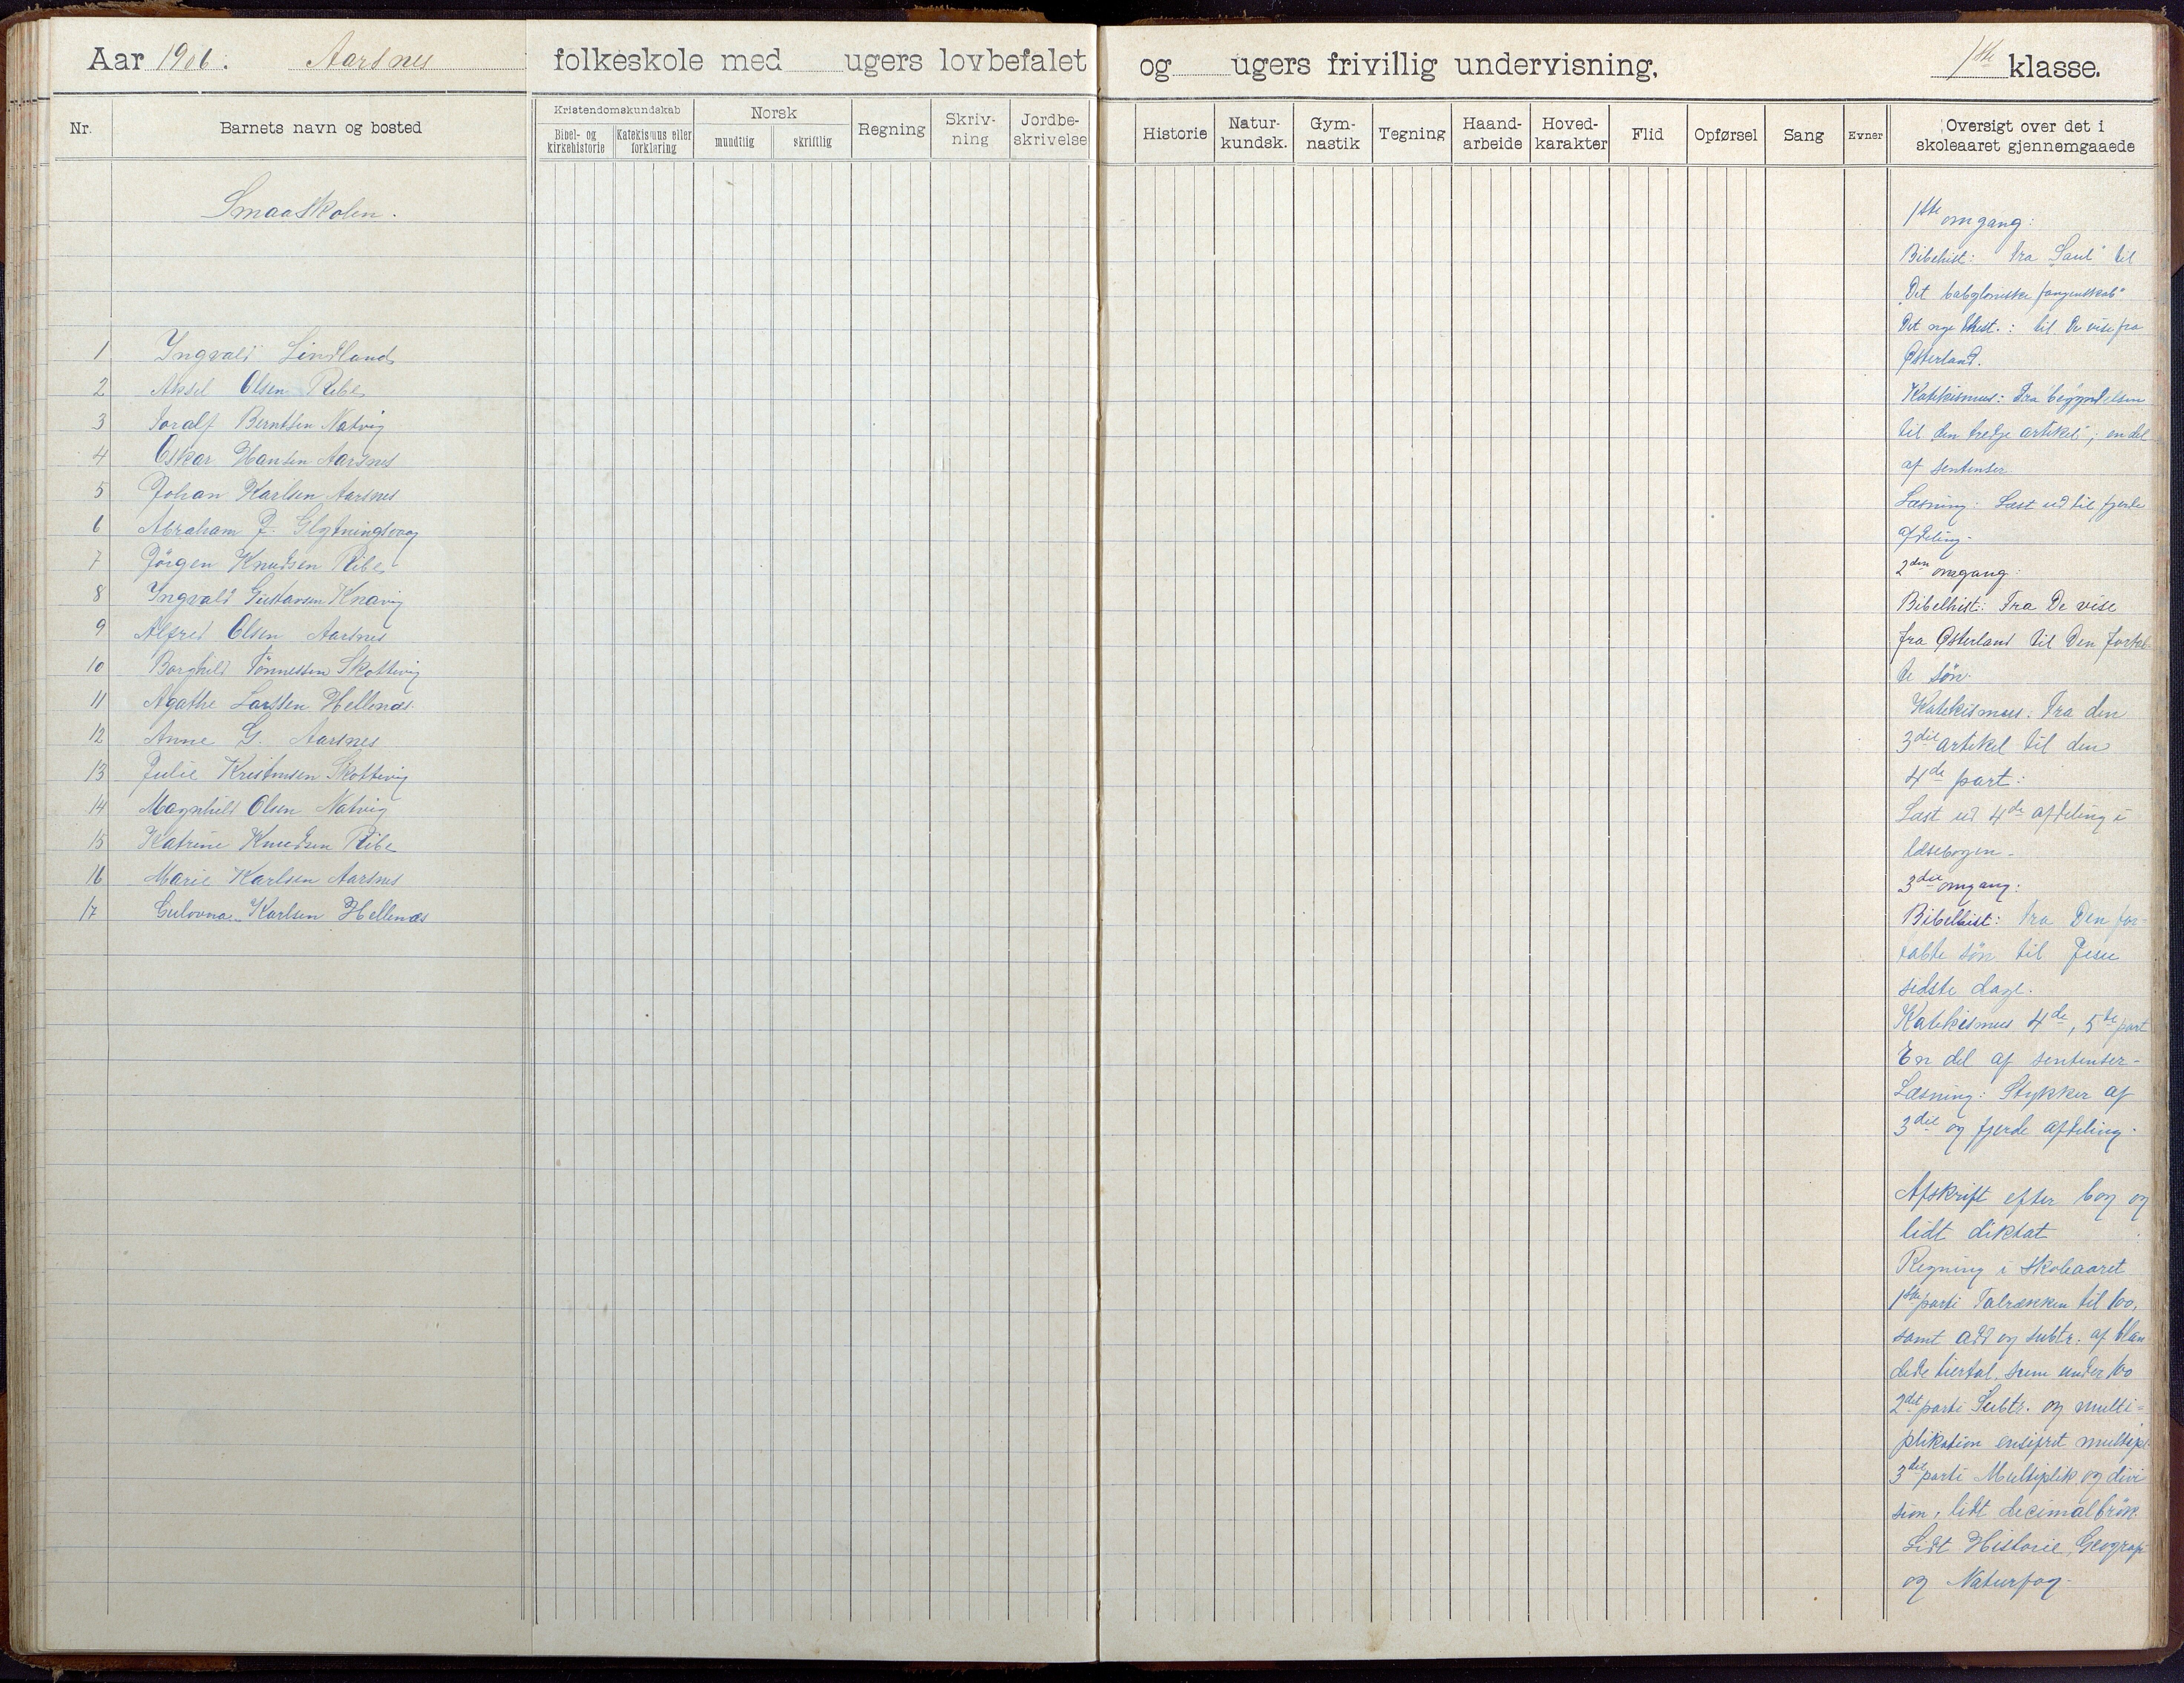 Aar 1906. Aarsnes folkeskole med ugers lovbefalet og ugers frivillig undervisning, 1ste klasse.
Nr.
Barnets navn og bosted
Kristendomskundskab
Bibel- og kirkehistorie
Katekismus eller forklaring
Norsk
mundtlig
skriftlig
Regning
Skriv-
ning
Jordbe-
skrivelse
Historie
Natur-
kundsk.
Gym-
nastik
Tegning
Haand-
arbeide
Hoved-
karakter
Flid
Opførsel
Sang
Evner
Oversigt over det i
skoleaaret gjennemgaaede
Smaaskolen.
1 Ingvald Lindland
2 Aksel Olsen Ribe
3 Toralf Berntsen Natvig
4 Oskar Hansen Aarsnes
5 Johan Karlsen Aarsnes
6 Abraham J. Glytningsvaag
7 Jörgen Knudsen Ribe
8 Ingvald Gustavsen Knavig
9 Alfred Olsen Aarsnes
10 Borghild Tönnessen Skottevig
11 Agathe Larssen Hellenæs
12 Anne G. Aarsnes
13 Julie Kristensen Skottevig
14 Magnhild Olsen Natvig
15 Katrine Knudsen Ribe
16 Marie Karlsen Aarsnes
17 Gulovna Karlsen Hellenæs
1ste omgang:
Bibelhist: Fra "Saul" til
"Det babyloniske fangenskab"
Det nye Test.: til De vise fra
Østerland.
Katekismus: Fra begyndelsen
til den tredje artikel; en del
af sentenser
Læsning: Læst ud til fjerde
afdeling.
2den omgang:
Bibelhist: Fra De vise
fra Østerland til Den fortab-
te søn.
Katekismus: Fra den
3die artikel til den
4de part:
Læst ud 4de afdeling i
læsebogen.
3die omgang:
Bibelhist: Fra Den for-
tabte søn til Jesu
sidste dage.
Katekismus 4de, 5te part
En del af sentenser-
Læsning: Stykker af
3die og fjerde afdeling.
Afskrift efter bog og
lidt diktat
Regning i skoleaaret
1ste parti Talrækken til 100,
samt add og subtr. af blan
dede tiertal, sum under 100
2det parti Subtr. og multi-
plikation ensifret multipl.
3die parti Multiplik. og divi
sion, lidt decimalbrøk
Lidt Historie, Geografi
og Naturfag-